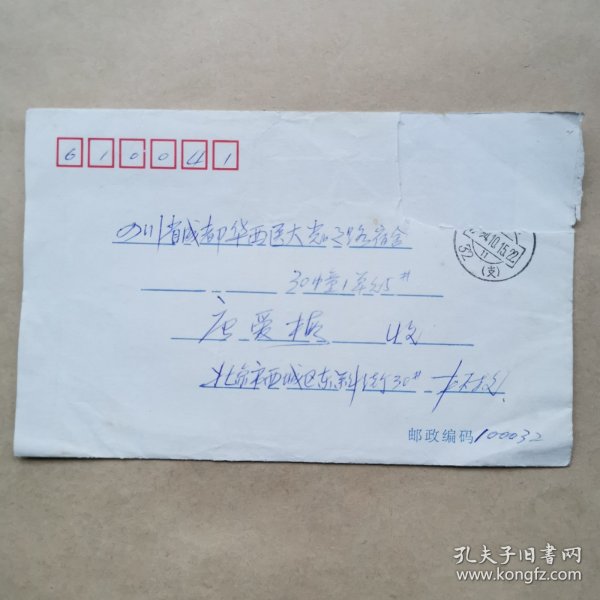 610041
四川省成都华西医大光明路宿舍
30幢1单元5#
唐爱根 收
北京市西城区东斜街30#
邮政编码100032
94.10.15.22
11
32
(支)
孔夫子旧书网
www.kongfz.com